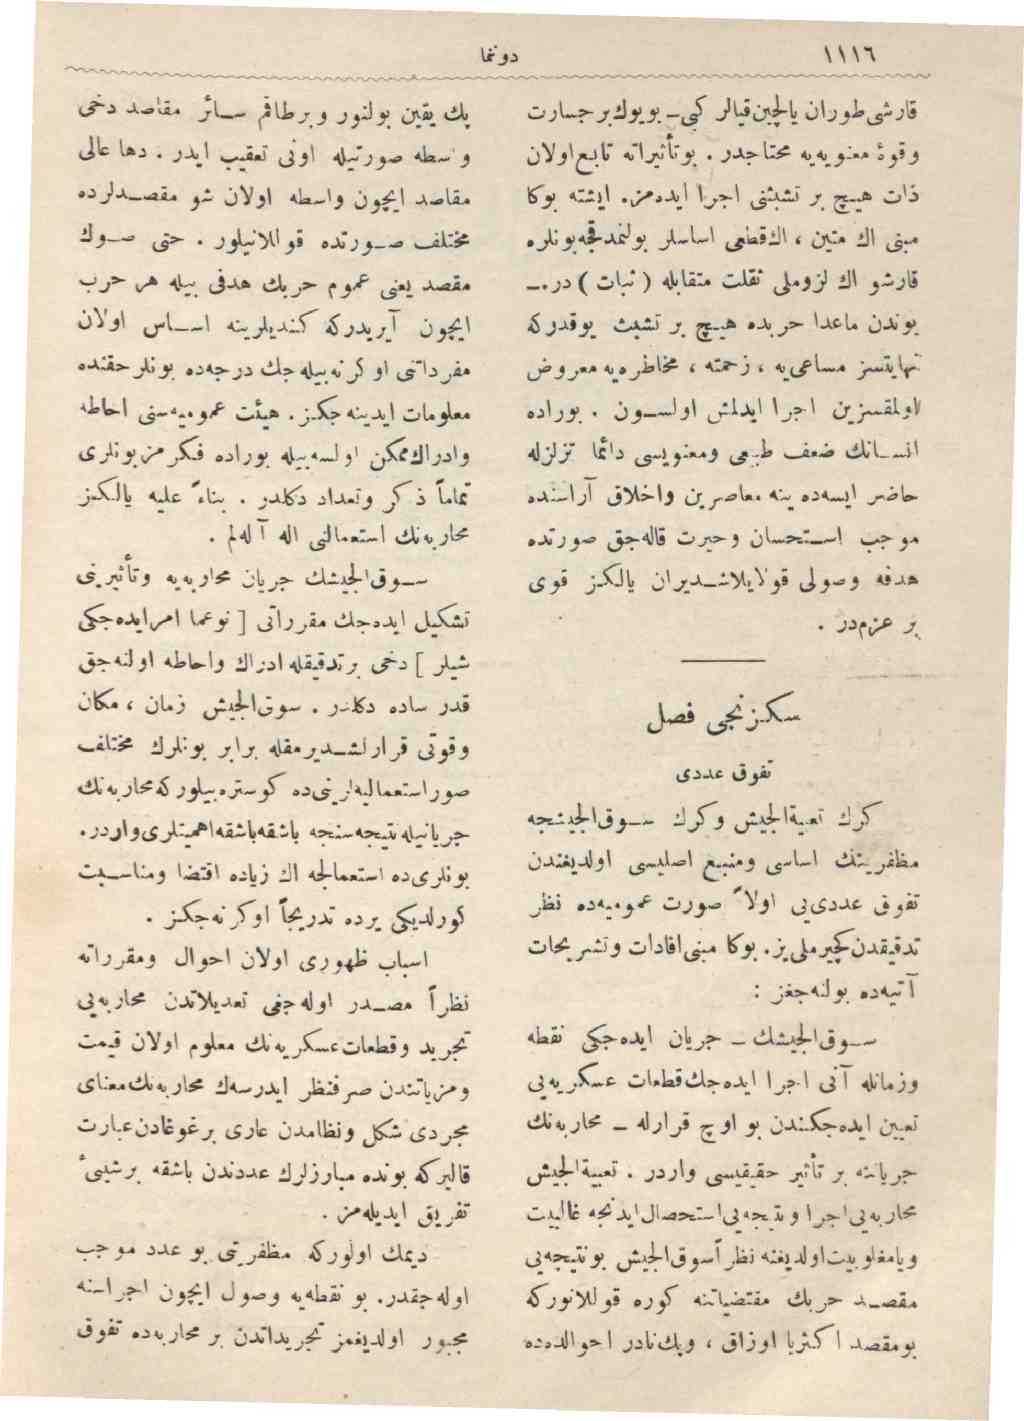 ١١١٦
دوننما
قارشی طوران یالچین قیالر کبی ـ بویوك بر جسارت
وقوۀ معنویه‌یه محتاجدر . بو تأثیراته تابع اولان
ذات هیچ بر تشبثنی اجرا ایده‌مز. ایشته بوکا
مبنی اك متین ، اك قطعی اساسلر بولنمدقجه بونلره
قارشو اك لزوملی ثقلت متقابله ( ثبات ) در.ـ
بوندن ماعدا حربده هیچ بر تشبث یوقدرکه
نهایتسز مساعی‌یه ، زحمته ، مخاطره‌یه معروض
اولمقسزین اجرا ایدلمش اولسون . بوراده
انسانك ضعف طبیعی ومعنویسی دائما تزلزله
حاضر ایسه‌ده ینه معاصرین واخلاق آراسنده
موجب استحسان وحیرت قاله‌جق صورتده
هدفه وصولی قولایلاشدیران یالکز قوی
بر عزم‌در .
سکزنجی فصل
تفوق عددی
کرك تعبیةالجیش وکرك سوق‌الجیشجه
مظفریتك اساسی ومنبع اصلیسی اولدیغندن
تفوق عددی‌یی اولاً صورت عمومیه‌ده نظر
تدقیقدن کچیرملی‌یز. بوکا مبنی افادات وتشریحات
آتیه‌ده بولنه‌جغز :
سوق‌الجیشك ـ جریان ایده‌جکی نقطه
وزمانله آنی اجرا ایده‌جك قطعات عسکریه‌یی
تعیین ایده‌جکندن بو اوچ قرارله ـ محاربه‌نك
جریاننه بر تأثیر حقیقیسی واردر . تعبیةالجیش
محاربه‌یی اجرا ونتیجه‌یی استحصال ایدنجه غالبیت
ویامغلوبیت اولدیغنه نظراً سوق‌الجیش بونتیجه‌یی
مقصد حربك مقتضیاتنه کوره قوللانورکه
بومقصد اکثریا اوزاق ، وپك نادر احوالده‌ده
پك یقین بولنور وبر طاقم سائر مقاصد دخی
واسطه صورتیله اونی تعقیب ایدر . دها عالی
مقاصد ایچون واسطه اولان شو مقصدلرده
مختلف صورتده قوللانیلور . حتی صوك
مقصد یعنی عموم حربك هدفی بیله هر حرب
ایچون آیریدرکه کندیلرینه اساس اولان
مفرداتنی اوکرنه‌بیله‌جك درجه‌ده بونلر حقنده
معلومات ایدینه‌جکز. هیئت عمومیه‌سنی احاطه
وادراك ممکن اولسه‌بیله بوراده فکرمز بونلری
تماماً ذکر وتعداد دکلدر . بناءً علیه یالکز
محاربه‌نك استعمالنی اله آله‌لم .
سوق‌الجیشك جریان محاربه‌یه وتأثیرینی
تشکیل ایده‌جك مقرراتی [ نوعما امر ایده‌جکی
شیلر ] دخی بر تدقیقله ادراك واحاطه اولنه‌جق
قدر ساده دکلدر . سوق‌الجیش زمان ، مکان
وقوتی قرارلشدیرمقله برابر بونلرك مختلف
صور استعمالیه‌لرینی‌ده کوستره‌بیلورکه محاربه‌نك
جریانیله نتیجه‌سنجه باشقه باشقه اهمیتلری واردر.
بونلری‌ده استعمالجه اك زیاده اقتضا ومناسبت
کورلدیکی یرده تدریجاً اوکرنه‌جکز .
اسباب ظهوری اولان احوال ومقرراته
نظراً مصدر اوله‌جغی تعدیلاتدن محاربه‌یی
تجرید وقطعات عسکریه‌نك معلوم اولان قیمت
ومزیاتندن صرفنظر ایدرسه‌ك محاربه‌نك معنای
مجردی شکل ونظامدن عاری بر غوغادن عبارت
قالیرکه بونده مبارزلرك عددندن باشقه بر شیئ
تفریق ایدیله‌مز .
دیمك اولورکه مظفرتی بو عدد موجب
اوله‌جقدر. بو نقطه‌یه وصول ایچون اجراسنه
مجبور اولدیغمز تجریداتدن بر محاربه‌ده تفوق